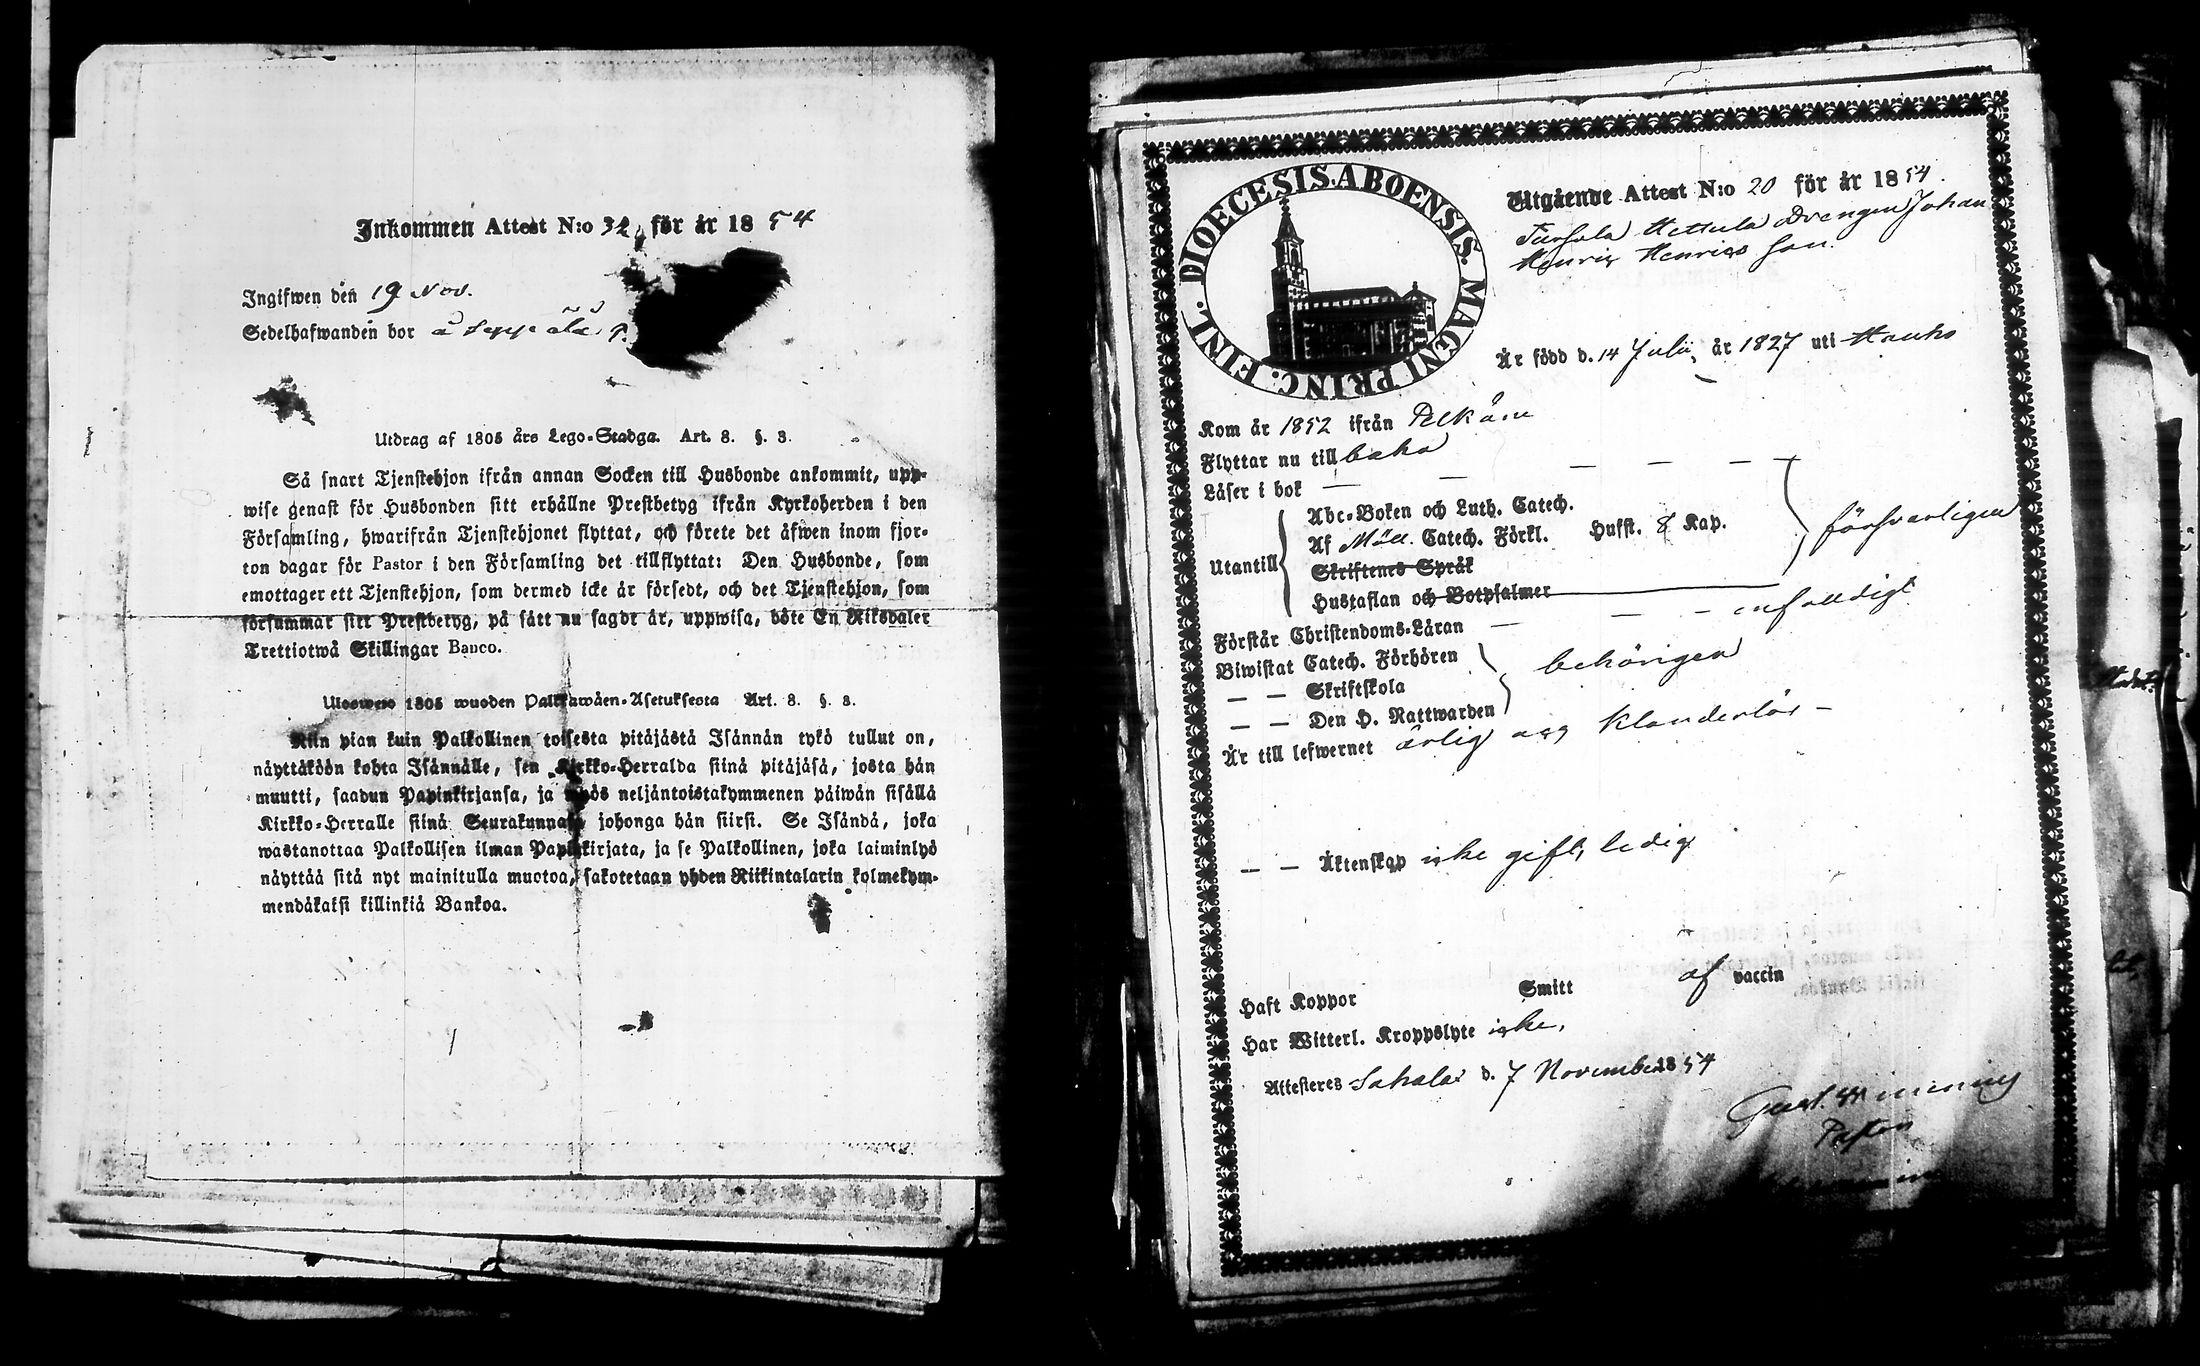 Inkommen Attest N:o 32, för år 1854
Ingifwen den 19 Nov.
Sedelhafwanden bor å Seppälä
Utdrag af 1805 års Lego-Stadga. Art. 8. §. 3.
Så snart Tjenstehjon ifrån annan Socken till Husbonde ankommit, upp-
wise genast för Husbonden sitt erhållne Prestbetyg ifrån Kyrkoherden i den
Församling, hwarifrån Tjenstehjonet flyttat, och förete det äfwen inom fjor-
ton dagar för Pastor i den Församling det tillflyttat: Den Husbonde, som
emottager ett Tjenstehjon, som dermed icke är försedt, och det Tjenstehjon, som
försummar sitt Prestbetyg, på sätt nu sagdt är, uppwisa, böte En Riksdaler
Trettiotwå Skillingar Banco.
Ulosweto 1805 wuoden Palkkawäen-Asetuksesta Art. 8. §. 3.
Niin pian kuin Palkollinen toisesta pitäjästä Isännän tykö tullut on,
näyttäköön kohta Isännälle, sen Kirkko-Herralda siinä pitäjäsä, josta hän
muutti, saadun Papinkirjansa, ja myös neljäntoistakymmenen päiwän sisällä
Kirkko-Herralle siinä Seurakunnasa johonga hän siirsi. Se Isändä, joka
wastanottaa Palkollisen ilman Papinkirjata, ja se Palkollinen, joka laiminlyö
näyttää sitä nyt mainitulla muotoa, sakotetaan yhden Riikintalarin kolmekym-
mendäkaksi killinkiä Bankoa.
DIOECESIS. ABOENSIS. MAGNI PRINC. FINL.
Utgående Attest N:o 20 för år 1854.
Hettula Drengen Johan
Henrik Henrics son.
Är född d. 14 Julii år 1827 uti Hauho
Kom år 1852 ifrån Pelkäne
Flyttar nu tillbaka
Läser i bok — — — — —
Utantill
Abc-Boken och Luth. Catech.
Af Möll. Catech. Förkl. Husst. 8 Kap.
försvarligen
Skriftenes Språk
Hustaflan och Botpsalmer
Förstår Christendoms-Läran — — — enfalldigt
Biwistat Catech. Förhören
behörigen
— — Skriftskola
— — Den H. Nattwarden
Är till lefwernet ärlig och klanderlös —
— — Äktenskap icke gift, ledig
Haft Koppor Smitt af vaccin
Har Witterl. Kroppslyte icke,
Attesteres Sahalax d. 7 November 1854
Gust.
Pastor